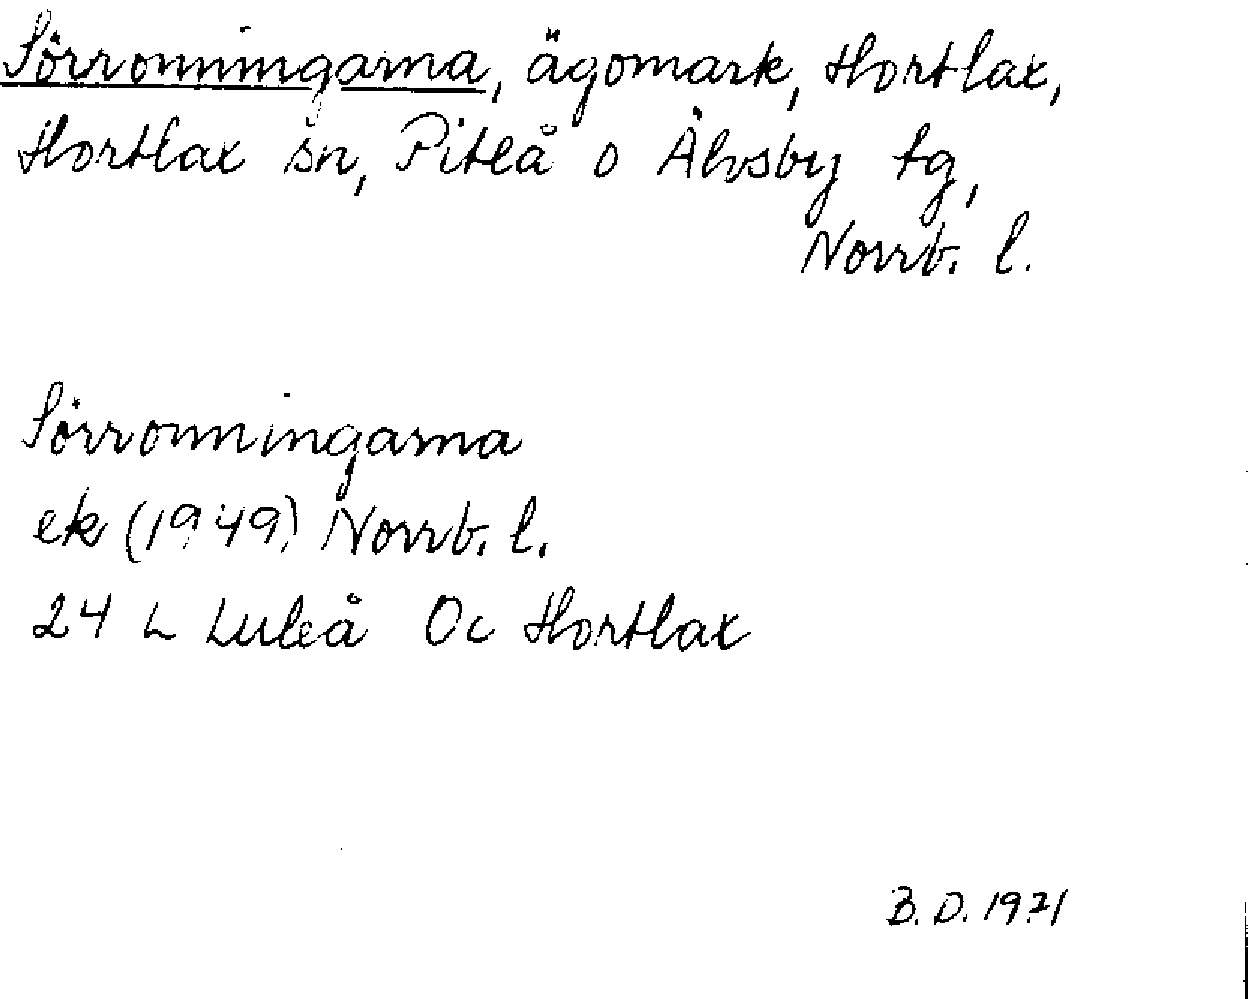 Sörronningarna, ägomark, Hortlax,
Hortlax sn, Piteå o Älvsby tg,
Norrb. l.
Sörronningarna
ek (1949) Norrb. l.
24 L Luleå Oc Hortlax
B. D. 1971